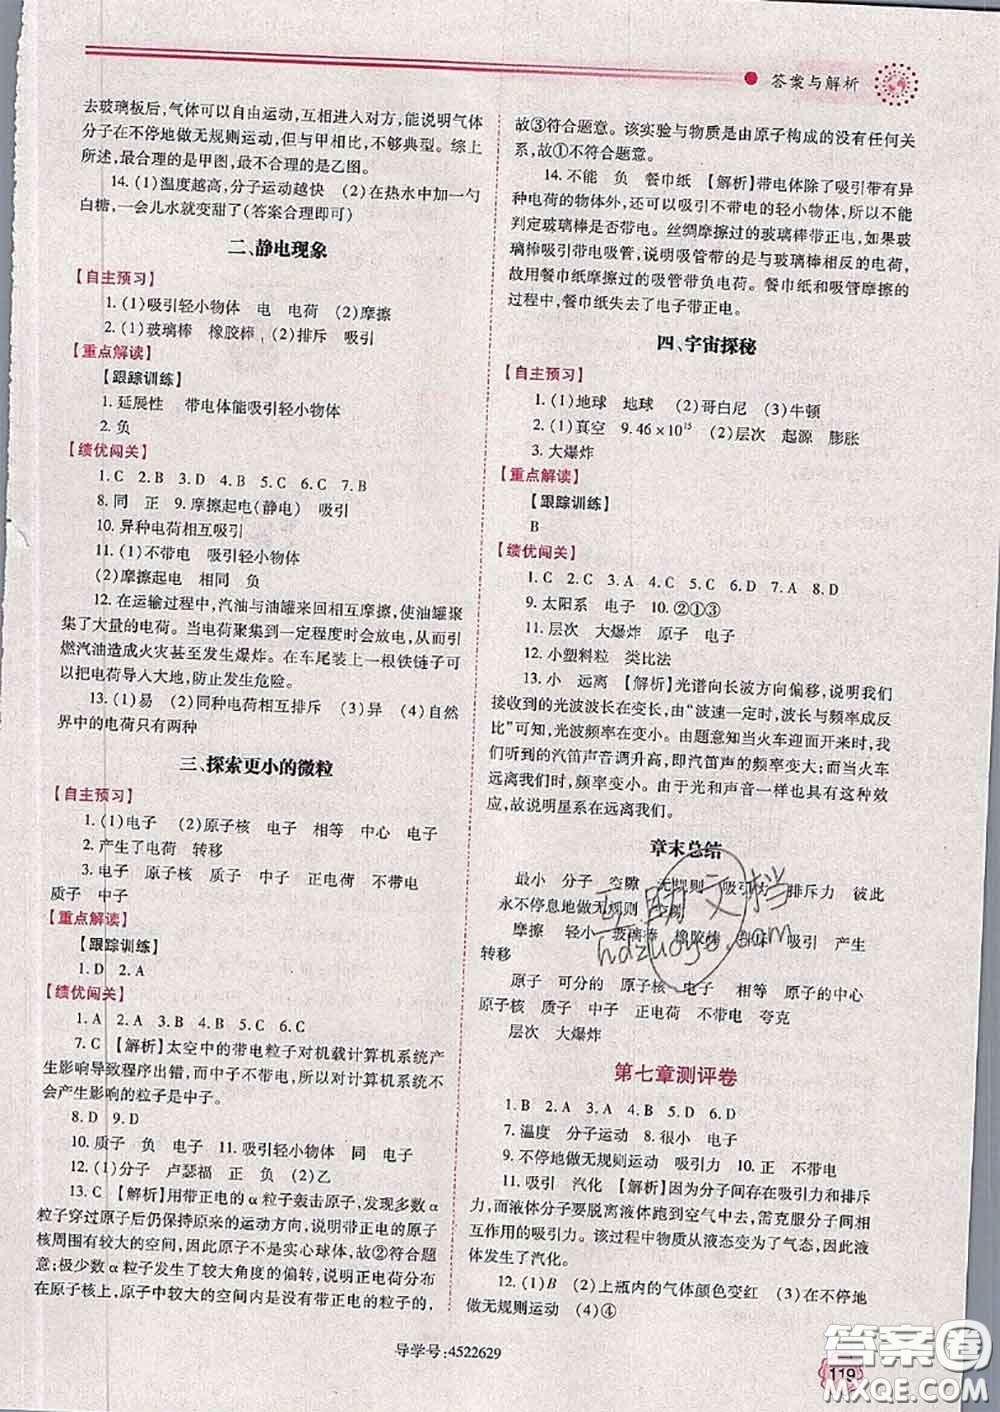 答案与解析
去玻璃板后,气体可以自由运动,互相进入对方,能说明气体
分子在不停地做无规则运动,但与甲相比,不够典型。综上
所述,最合理的是甲图,最不合理的是乙图。
14. (1)温度越高,分子运动越快 (2)在热水中加一勺
白糖,一会儿水就变甜了(答案合理即可)
二、静电现象
【自主预习】
1. (1)吸引轻小物体 电 电荷 (2)摩擦
2. (1)玻璃棒 橡胶棒 (2)排斥 吸引
【重点解读】
【跟踪训练】
1. 延展性 带电体能吸引轻小物体
2. 负
【绩优闯关】
1. C 2. B 3. D 4. B 5. C 6. A 7. B
8. 同 正 9. 摩擦起电(静电) 吸引
10. 异种电荷相互吸引
11. (1)不带电 吸引轻小物体
(2)摩擦起电 相同 负
12. 在运输过程中,汽油与油罐来回相互摩擦,使油罐聚
集了大量的电荷。当电荷聚集到一定程度时会放电,从而引
燃汽油造成火灾甚至发生爆炸。在车尾装上一根铁链子可
以把电荷导入大地,防止发生危险。
13. (1)易 (2)同种电荷相互排斥 (3)异 (4)自然
界中的电荷只有两种
三、探索更小的微粒
【自主预习】
1. (1)电子 (2)原子核 电子 相等 中心 电子
2. 产生了电荷 转移
3. 电子 原子核 原子核 电子 正电荷 不带电
质子 中子
【重点解读】
【跟踪训练】
1. D 2. A
【绩优闯关】
1. A 2. A 3. B 4. B 5. C 6. C
7. C 【解析】太空中的带电粒子对机载计算机系统产
生影响导致程序出错,而中子不带电,所以对计算机系统不
会产生影响的粒子是中子。
8. D 9. D
10. 质子 负 电子 11. 吸引轻小物体 同 电子
12. (1)分子 卢瑟福 正 负 (2)乙
13. C 【解析】用带正电的α粒子轰击原子,发现多数α
粒子穿过原子后仍保持原来的运动方向,说明带正电的原子
核周围有较大的空间,因此原子不是实心球体,故②符合题
意;极少数α粒子发生了较大角度的偏转,说明正电荷分布
在原子核上,原子中较大的空间内是没有带正电的粒子的,
故③符合题意。该实验与物质是由原子构成的没有任何关
系,故①不符合题意。
14. 不能 负 餐巾纸 【解析】带电体除了吸引带有异
种电荷的物体外,还可以吸引不带电的轻小物体,所以不能
判定玻璃棒是否带电。丝绸摩擦过的玻璃棒带正电,如果玻
璃棒吸引带电吸管,说明吸管带的是与玻璃棒相反的电荷,
故用餐巾纸摩擦过的吸管带负电荷。餐巾纸和吸管摩擦的
过程中,餐巾纸失去了电子带正电。
四、宇宙探秘
【自主预习】
1. (1)地球 地球 (2)哥白尼 (3)牛顿
2. (1)真空 9.46×10¹⁵ (2)层次 起源 膨胀
3. 大爆炸
【重点解读】
【跟踪训练】
B
【绩优闯关】
1. C 2. C 3. A 4. C 5. D 6. D 7. A 8. D
9. 太阳系 电子 10. ②①③
11. 层次 大爆炸 原子 电子
12. 小塑料粒 类比法
13. 小 远离 【解析】光谱向长波方向偏移,说明我们
接收到的光波波长在变长,由“波速一定时,波长与频率成反
比”可知,光波频率在变小。由题意知当火车迎面开来时,我
们听到的汽笛声音调升高,即汽笛声的频率变大;而当火车
远离我们时,频率变小。由于光和声音一样也具有这种效
应,故说明星系在远离我们。
章末总结
最小 分子 空隙 无规则 吸引力 排斥力 彼此
永不停息地做无规则 空隙
摩擦 轻小 玻璃棒 橡胶棒 排斥 吸引 产生
转移
原子 可分的 原子核 电子 相等 原子的中心
原子核 质子 中子 正电荷 不带电 夸克
层次 大爆炸
第七章测评卷
1. B 2. A 3. A 4. D 5. D 6. D
7. 温度 分子运动 8. 很小 电子
9. 不停地做无规则运动 吸引力 10. 正 不带电
11. 吸引 汽化 【解析】因为分子间存在吸引力和排斥
力,而液体分子要脱离液体跑到空气中去,需克服分子间相
互作用的吸引力。该过程中物质从液态变为了气态,因此液
体发生了汽化。
12. (1)B (2)上瓶内的气体颜色变红 (3)在不停地
做无规则运动 (4)④
互助文档
hdzuoye.com
导学号:4522629
119
答案卷
MXQE.COM